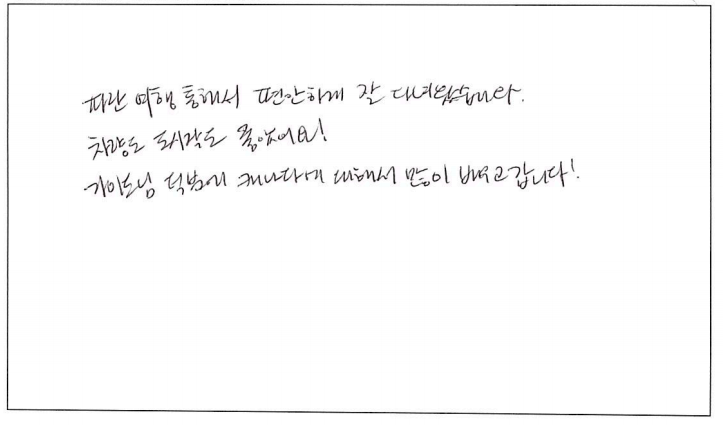 파란 여행 통해서 편안하게 잘 다녀왔습니다.
차량도 도시락도 좋았어요!
가이드님 덕분에 캐나다에 대해서 많이 배우고 갑니다!